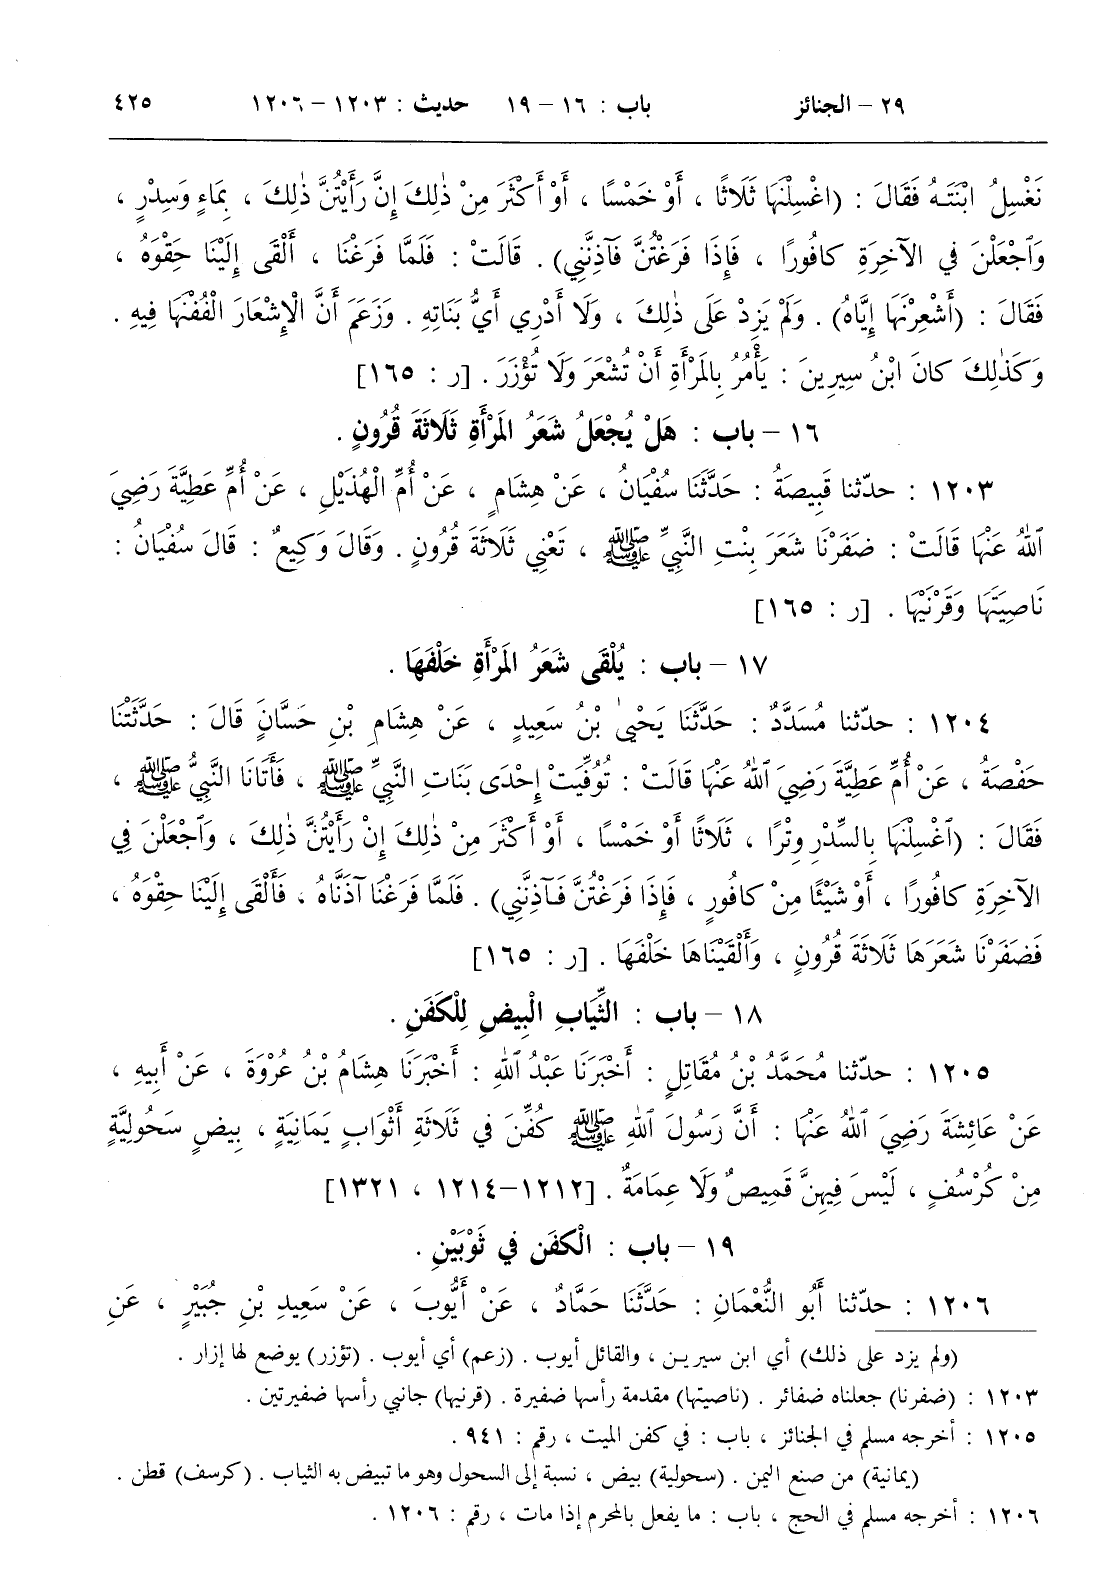 ٢٩ – الجنائز باب : ١٦ – ١٩ حديث : ١٢٠٣ – ١٢٠٦ ٤٢٥
نَغْسِلُ ابْنَتَهُ فَقَالَ : (اغْسِلْنَهَا ثَلَاثًا ، أَوْ خَمْسًا ، أَوْ أَكْثَرَ مِنْ ذٰلِكَ إِنَّ رَأَيْتُنَّ ذٰلِكَ ، بِمَاءٍ وَسِدْرٍ ،
وَٱجْعَلْنَ فِي الآخِرَةِ كافُورًا ، فَإِذَا فَرَغْتُنَّ فَآذِنَّنِي) . قَالَتْ : فَلَمَّا فَرَغْنَا ، أَلْقَى إِلَيْنَا حِقْوَهُ ،
فَقَالَ : (أَشْعِرْنَهَا إِيَّاهُ) . وَلَمْ يَزِدْ عَلَى ذٰلِكَ ، وَلَا أَدْرِي أَيُّ بَنَاتِهِ . وَزَعَمَ أَنَّ الْإِشْعَارَ الْفُفْنَهَا فِيهِ .
وَكَذٰلِكَ كانَ ابْنُ سِيرِينَ : يَأْمُرُ بِالمَرْأَةِ أَنْ تُشْعَرَ وَلَا تُؤْزَرَ . [ر : ١٦٥]
١٦ – باب : هَلْ يُجْعَلُ شَعَرُ المَرْأَةِ ثَلَاثَةَ قُرُونٍ .
١٢٠٣ : حدّثنا قَبِيصَةُ : حَدَّثَنَا سُفْيَانُ ، عَنْ هِشَامٍ ، عَنْ أُمِّ الْهُذَيْلِ ، عَنْ أُمِّ عَطِيَّةَ رَضِيَ
ٱللهُ عَنْهَا قَالَتْ : ضَفَرْنَا شَعَرَ بِنْتِ النَّبِيِّ ﷺ ، تَعْنِي ثَلَاثَةَ قُرُونٍ . وَقَالَ وَكِيعٌ : قَالَ سُفْيَانُ :
نَاصِيَتَهَا وَقَرْنَيْهَا . [ر : ١٦٥]
١٧ – باب : يُلْقَى شَعَرُ المَرْأَةِ خَلْفَهَا .
١٢٠٤ : حدّثنا مُسَدَّدٌ : حَدَّثَنَا يَحْيىٰ بْنُ سَعِيدٍ ، عَنْ هِشَامِ بْنِ حَسَّانَ قَالَ : حَدَّثَتْنَا
حَفْصَةُ ، عَنْ أُمِّ عَطِيَّةَ رَضِيَ ٱللهُ عَنْهَا قَالَتْ : تُوُفِّيَتْ إِحْدَى بَنَاتِ النَّبِيِّ ﷺ ، فَأَتَانَا النَّبِيُّ ﷺ ،
فَقَالَ : (ٱغْسِلْنَهَا بِالسِّدْرِ وِتْرًا ، ثَلَاثًا أَوْ خَمْسًا ، أَوْ أَكْثَرَ مِنْ ذٰلِكَ إِنْ رَأَيْتُنَّ ذٰلِكَ ، وَٱجْعَلْنَ فِي
الآخِرَةِ كافُورًا ، أَوْ شَيْئًا مِنْ كافُورٍ ، فَإِذَا فَرَغْتُنَّ فَآذِنَّنِي) . فَلَمَّا فَرَغْنَا آذَنَّاهُ ، فَأَلْقَى إِلَيْنَا حِقْوَهُ ،
فَضَفَرْنَا شَعَرَهَا ثَلَاثَةَ قُرُونٍ ، وَأَلْقَيْنَاهَا خَلْفَهَا . [ر : ١٦٥]
١٨ – باب : الثِّيَابِ الْبِيضِ لِلْكَفَنِ .
١٢٠٥ : حدّثنا مُحَمَّدُ بْنُ مُقَاتِلٍ : أَخْبَرَنَا عَبْدُ ٱللهِ : أَخْبَرَنَا هِشَامُ بْنُ عُرْوَةَ ، عَنْ أَبِيهِ ،
عَنْ عَائِشَةَ رَضِيَ ٱللهُ عَنْهَا : أَنَّ رَسُولَ ٱللهِ ﷺ كُفِّنَ فِي ثَلَاثَةِ أَثْوَابٍ يَمَانِيَةٍ ، بِيضٍ سَحُولِيَّةٍ
مِنْ كُرْسُفٍ ، لَيْسَ فِيهِنَّ قَمِيصٌ وَلَا عِمَامَةٌ . [١٢١٢–١٢١٤ ، ١٣٢١]
١٩ – باب : الْكَفَنِ فِي ثَوْبَيْنِ .
١٢٠٦ : حدّثنا أَبُو النُّعْمَانِ : حَدَّثَنَا حَمَّادٌ ، عَنْ أَيُّوبَ ، عَنْ سَعِيدِ بْنِ جُبَيْرٍ ، عَنِ
(ولم يزد على ذلك) أي ابن سيرين ، والقائل أيوب . (زعم) أي أيوب . (تؤزر) يوضع لها إزار .
١٢٠٣ : (ضفرنا) جعلناه ضفائر . (ناصيتها) مقدمة رأسها ضفيرة . (قرنيها) جانبي رأسها ضفيرتين .
١٢٠٥ : أخرجه مسلم في الجنائز ، باب : في كفن الميت ، رقم : ٩٤١ .
(يمانية) من صنع اليمن . (سحولية) بيض ، نسبة إلى السحول وهو ما تبيض به الثياب . (كرسف) قطن .
١٢٠٦ : أخرجه مسلم في الحج ، باب : ما يفعل بالمحرم إذا مات ، رقم : ١٢٠٦ .